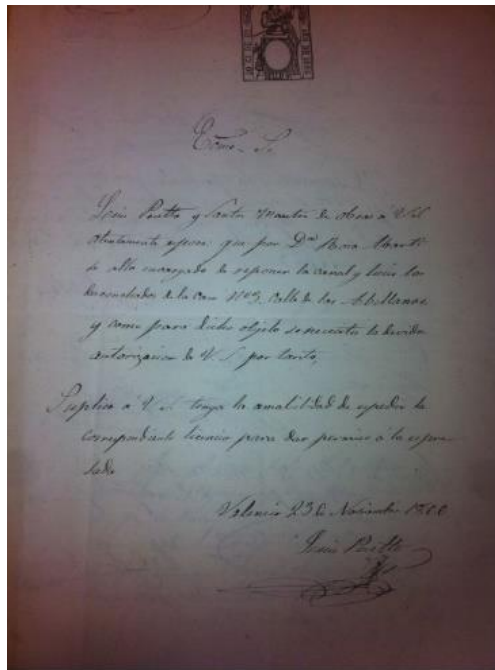 Excmo. Sr.
y Santos Maestro de obras á V. S.
atentamente expone: que por Dª Rosa
se halla encargado de reponer la canal y lucir los
desconchados de la casa Nº 3, Calle de las Abellanas
y como para dicho objeto se necesita la devida
autorizacion de V. S. por tanto,
Suplico á V. S. tenga la amabilidad de espedir la
correspondiente licencia para dar permiso á lo espre
sado
Valencia 23 de Noviembre